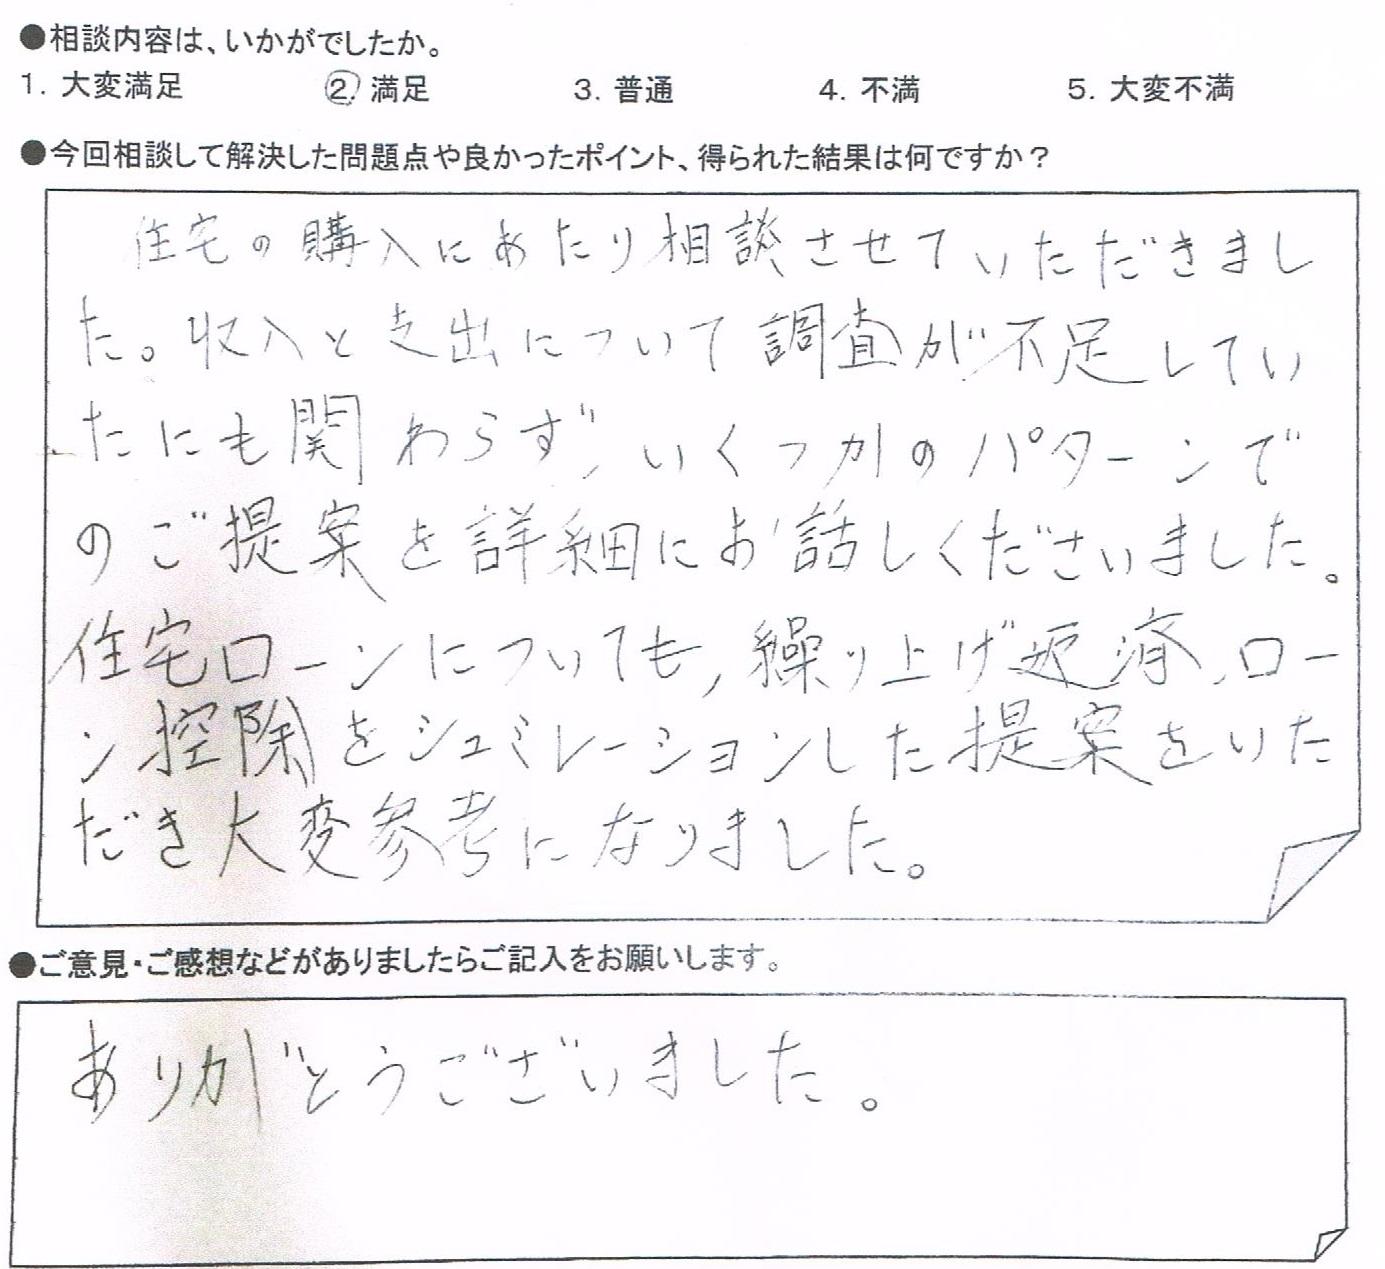 ●相談内容は、いかがでしたか。
1. 大変満足 ② 満足 3. 普通 4. 不満 5. 大変不満
●今回相談して解決した問題点や良かったポイント、得られた結果は何ですか?
住宅の購入にあたり相談させていただきまし
た。収入と支出について調査が不足してい
たにも関わらず、いくつかのパターンで
のご提案を詳細にお話しくださいました。
住宅ローンについても,繰り上げ返済、ロー
ン控除をシュミレーションした提案をいた
だき大変参考になりました。
●ご意見・ご感想などがありましたらご記入をお願いします。
ありがとうございました。